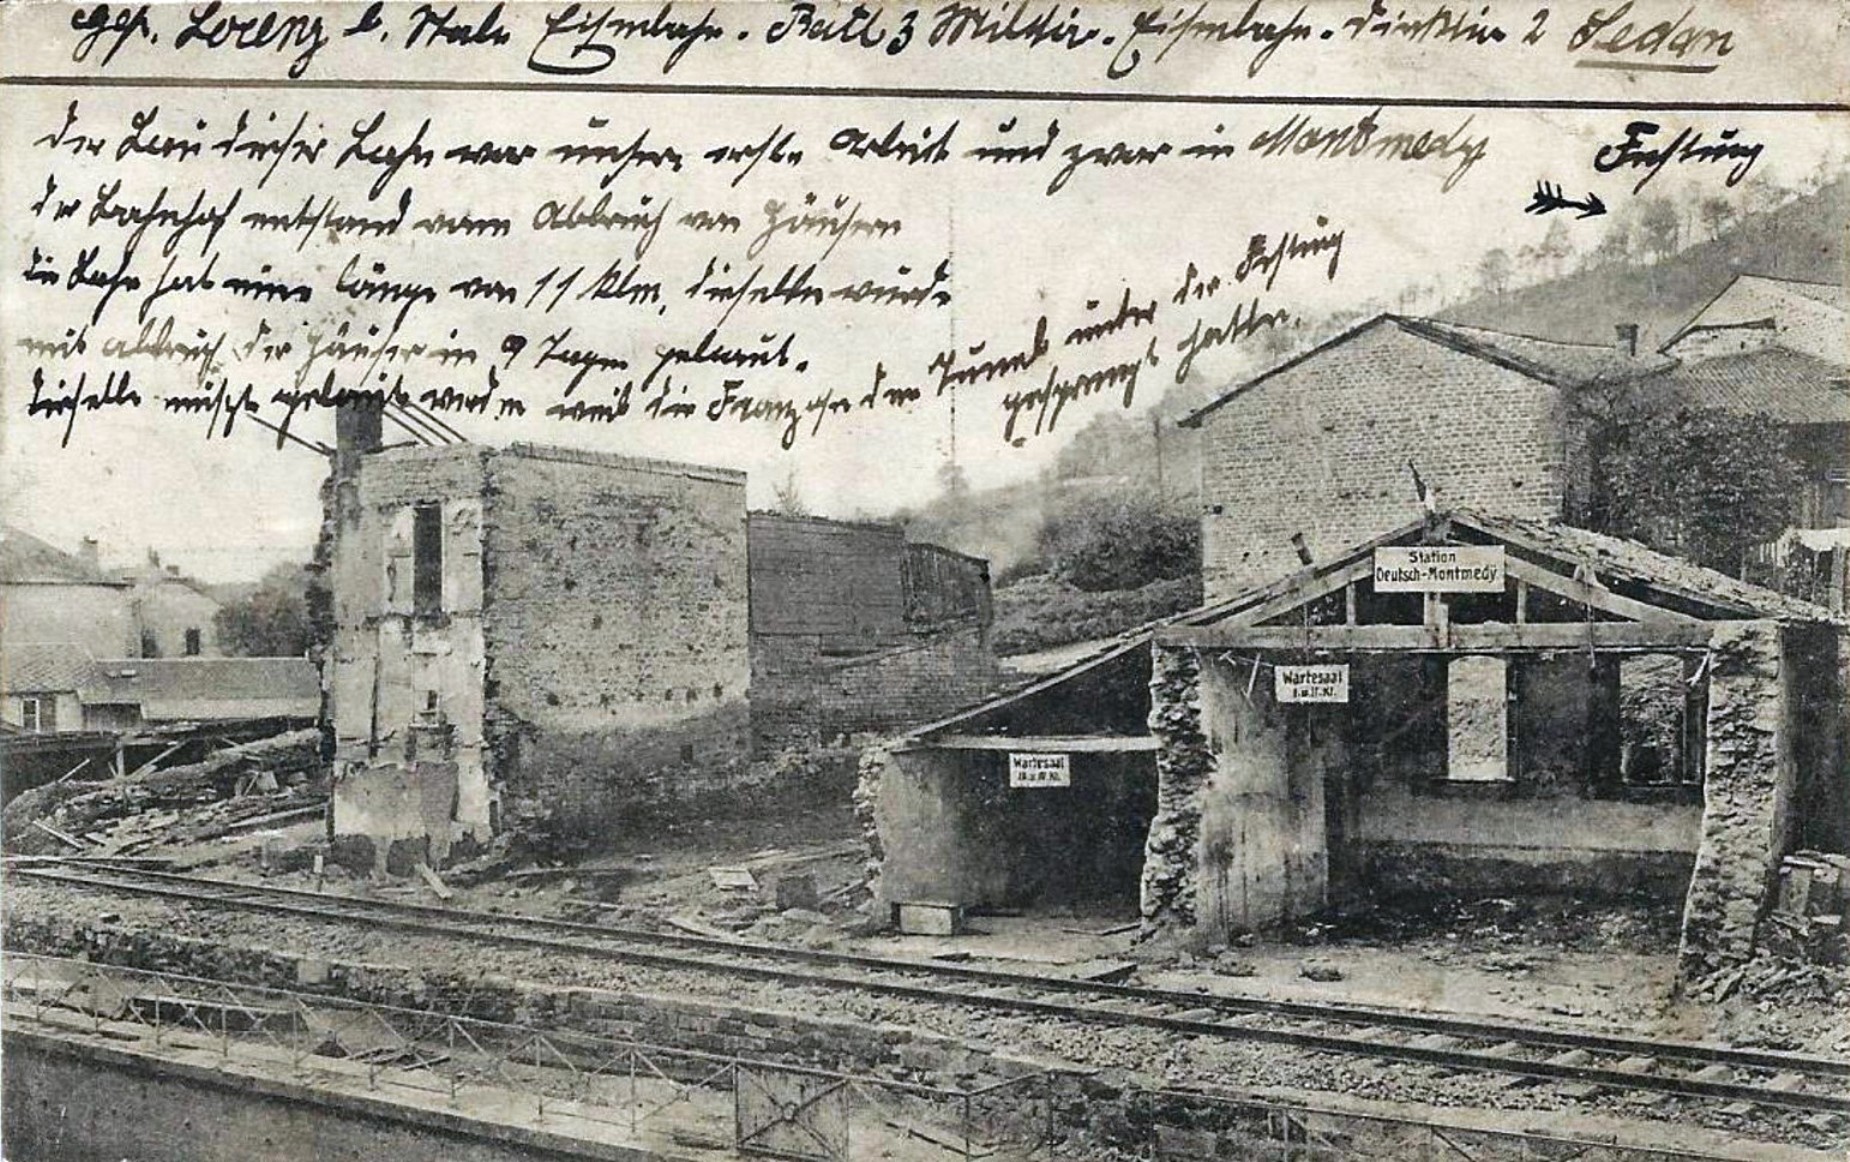 Gefr. Lorenz b. Stabe Eisenbahn-Batl 3 Militär-Eisenbahn-Direktion 2 Sedan
der Bau dieser Bahn war unsere erste Arbeit und zwar in Montmedy
Festung
der Bahnhof entstand vom Abbruch von Häusern
die Bahn hat eine Länge von 11 klm, dieselbe wurde
mit abbruch der Häuser in 9 Tagen gebaut.
dieselbe musste gebaut werden weil die Franzosen den Tunnel unter der Festung
gesprengt hatten.
Station
Deutsch-Montmedy
Wartesaal
I. u. II. Kl.
Wartesaal
III. u. IV. Kl.